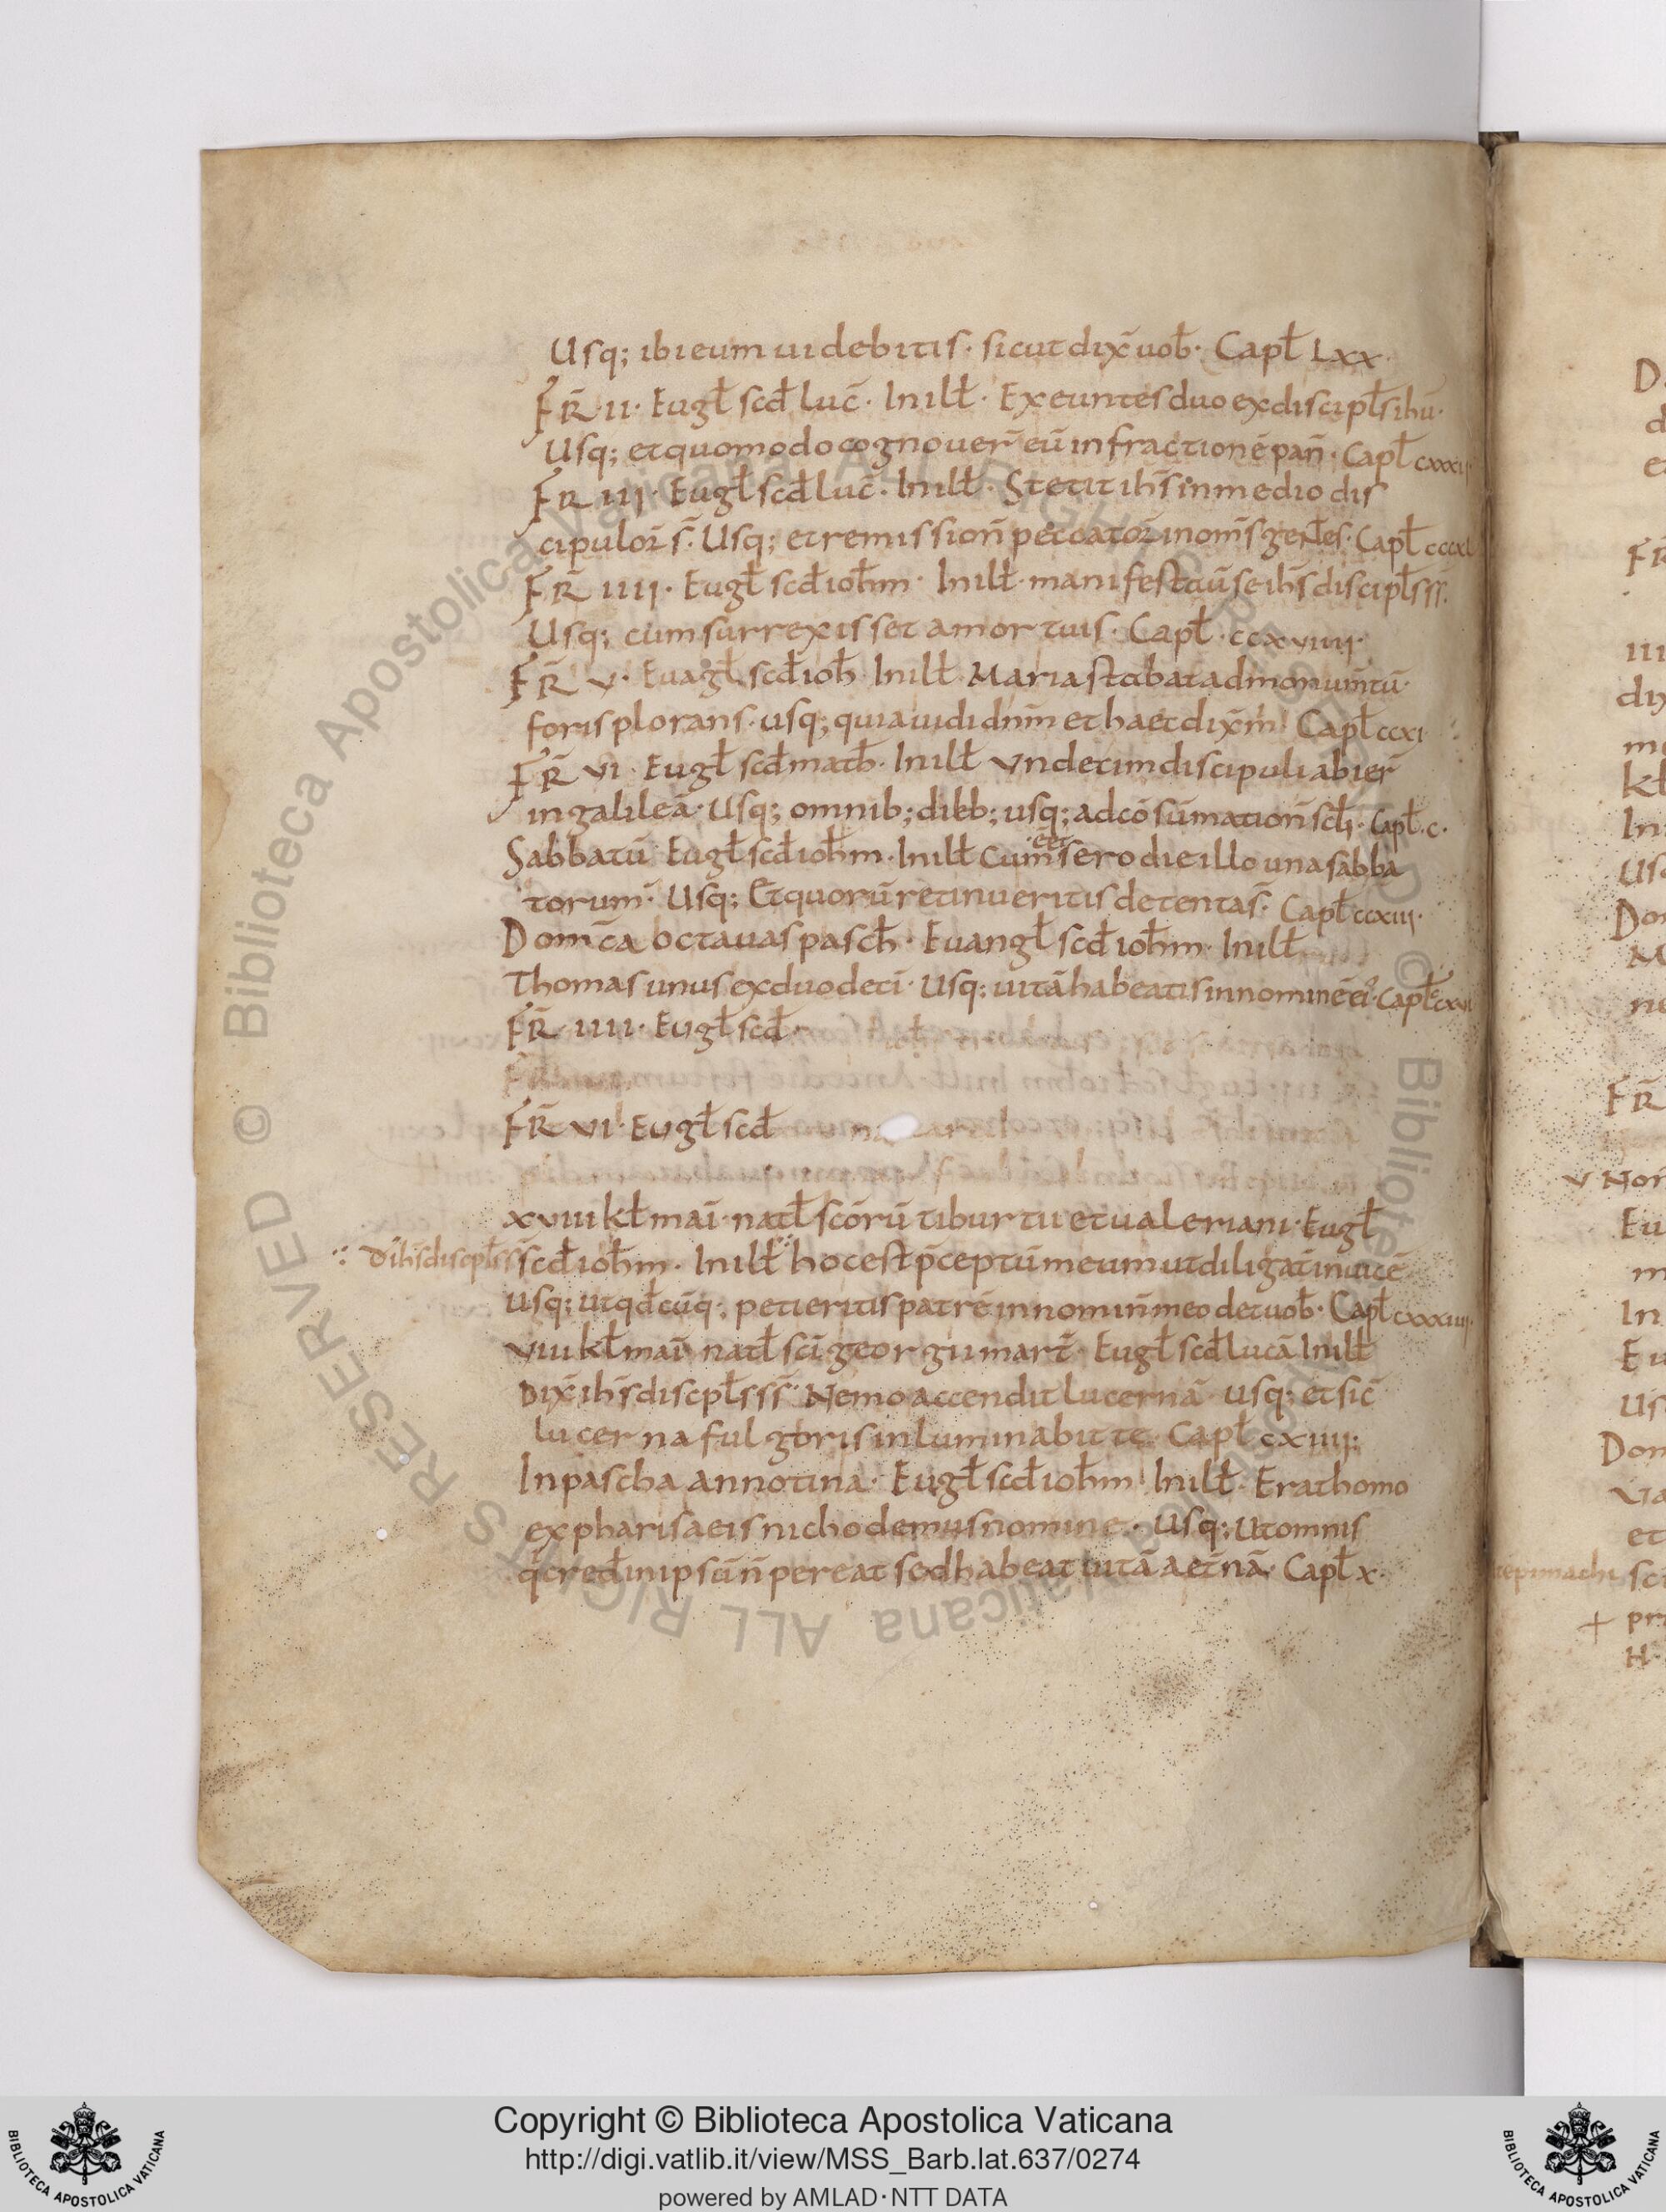 Usq; ibi eum uidebitis · sicut dix̄ uob̄ · Capl̄ Lxx ·
FR̄ · II · Eugl̄ scd̄ luc̄ · In ill̄ · Exeuntes duo ex discipl̄s ihū ·
Usq; et quomodo cognouer̄ eū in fractionē pan̄ · Capl̄ cxxxii
FR̄ III · Eugl̄ scd̄ luc̄ · In ill̄ · Stetit ihs̄ in medio dis
cipulor̄ s̄ · Usq; et remission̄ peccator̄ in om̄s gentes · Capl̄
FR̄ IIII · Eugl̄ scd̄ ioh̄m · In ill̄ · manifestauī se ihs̄ discipl̄s ss̄ ·
Usq; cum surrexisset amortuis · Capl̄ · ccxviiii ·
FR̄ V · Euagl̄ scd̄ ioh̄ · In ill̄ · Maria stabat ad monumtū ·
foris plorans · usq; quia uidi dnm̄ et haec dix̄ m̄ · Capl̄ ccxi
FR̄ VI · Eugl̄ scd̄ math̄ · In ill̄ Vndecim discipuli abier̄
in galileā · Usq; omnib; dieb; usq; ad cōsūmation̄ scl̄i · Capl̄ · c ·
Sabbatū Eugl̄ scd̄ ioh̄m · In ill̄ Cum eēt sero die illo una sabba
torum · Usq; Et quorū retinueritis detenta s̄ · Capl̄ ccxiii ·
Domc̄a octauas pasch̄ · Euangl̄ scd̄ ioh̄m · In ill̄
Thomas unus ex duodeci · Usq; uitā habeatis in nomine ei · Capl̄
FR̄ IIII · Eugl̄ scd̄
FR̄ VI · Eugl̄ scd̄
xviii kl̄ mai · natl̄ scōrū tiburtii et ualeriani · Eugl̄
∴ D ihs̄ discipl̄is ss̄ scd̄ ioh̄m · In ill̄ ∴ hoc est p̄ceptū meum ut diligat̄ inuicē
usq; ut qd̄cūq; petieritis patrē in nomin̄ meo det uob̄ · Capl̄ cxxxiiii ·
viii kl̄ mai natl̄ sc̄i georgii mart̄ · Eugl̄ scd̄ lucā In ill̄
Dix̄ ihs̄ discipl̄s ss̄ · Nemo accendit lucernā · usq; et sic̄
lucerna fulgoris inluminabit te · Capl̄ cxiiii;
In pascha annotina · Eugl̄ scd̄ ioh̄m · In ill̄ · Erat homo
ex pharisaeis nichodemus nomine · Usq; ut omnis
q̄ cred̄ in ipsū n̄ pereat sed habeat uitā aet̄nā · Capl̄ x ·
Copyright © Biblioteca Apostolica Vaticana
http://digi.vatlib.it/view/MSS_Barb.lat.637/0274
powered by AMLAD·NTT DATA
BIBLIOTECA APOSTOLICA VATICANA
BIBLIOTECA APOSTOLICA VATICANA